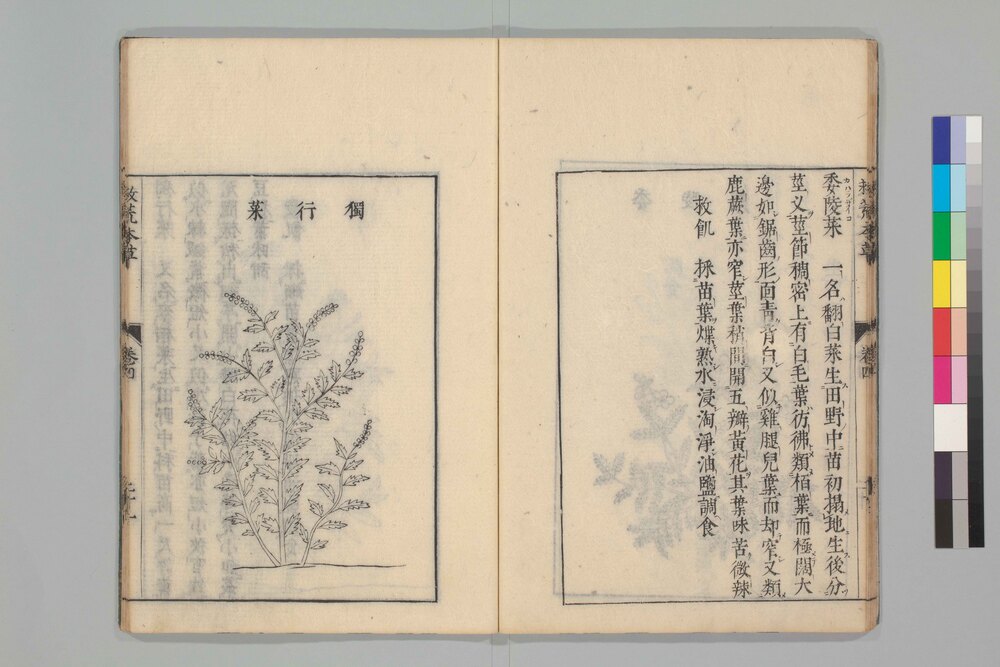 委陵菜 一名翻白菜生田野中苗初搨地生後分
カハラサイコ
莖叉莖節稠密上有白毛葉彷彿類栢葉而極闊大
邊如鋸齒形面青背白又似雞腿兒葉而却窄又類
鹿蕨葉亦窄莖葉稍間開五瓣黃花其葉味苦微辣
救飢 採苗葉煠熟水浸淘淨油鹽調食
獨行菜
救荒本草
卷四